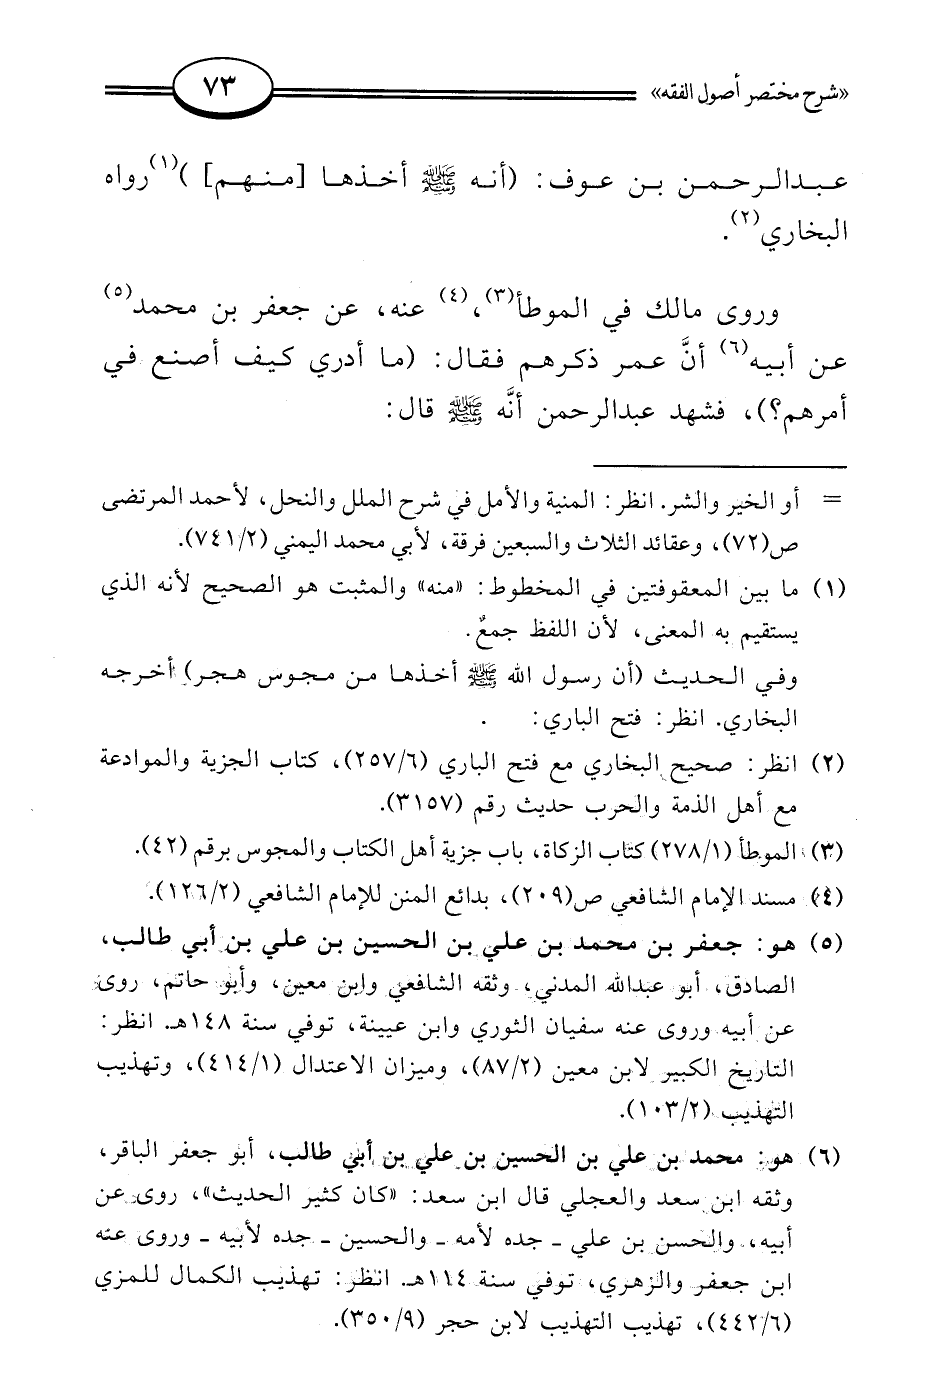 «شرح مختصر أصول الفقه» ٧٣
عبدالرحمن بن عوف: (أنه ﷺ أخذها [منهم] )(١)رواه
البخاري(٢).
وروى مالك في الموطأ(٣)،(٤) عنه، عن جعفر بن محمد(٥)
عن أبيه(٦) أنَّ عمر ذكرهم فقال: (ما أدري كيف أصنع في
أمرهم؟)، فشهد عبدالرحمن أنَّه ﷺ قال:
= أو الخير والشر. انظر: المنية والأمل في شرح الملل والنحل، لأحمد المرتضى
ص(٧٢)، وعقائد الثلاث والسبعين فرقة، لأبي محمد اليمني (٧٤١/٢).
(١) ما بين المعقوفتين في المخطوط: «منه» والمثبت هو الصحيح لأنه الذي
يستقيم به المعنى، لأن اللفظ جمعٌ.
وفي الحديث (أن رسول الله ﷺ أخذها من مجوس هجر) أخرجه
البخاري. انظر: فتح الباري: .
(٢) انظر: صحيح البخاري مع فتح الباري (٢٥٧/٦)، كتاب الجزية والموادعة
مع أهل الذمة والحرب حديث رقم (٣١٥٧).
(٣) الموطأ (٢٧٨/١) كتاب الزكاة، باب جزية أهل الكتاب والمجوس برقم (٤٢).
(٤) مسند الإمام الشافعي ص(٢٠٩)، بدائع المنن للإمام الشافعي (١٢٦/٢).
(٥) هو: جعفر بن محمد بن علي بن الحسين بن علي بن أبي طالب،
الصادق، أبو عبدالله المدني، وثقه الشافعي وابن معين، وأبو حاتم، روى
عن أبيه وروى عنه سفيان الثوري وابن عيينة، توفي سنة ١٤٨هـ. انظر:
التاريخ الكبير لابن معين (٨٧/٢)، وميزان الاعتدال (٤١٤/١)، وتهذيب
التهذيب (١٠٣/٢).
(٦) هو: محمد بن علي بن الحسين بن علي بن أبي طالب، أبو جعفر الباقر،
وثقه ابن سعد والعجلي قال ابن سعد: «كان كثير الحديث»، روى عن
أبيه، والحسن بن علي ـ جده لأمه ـ والحسين ـ جده لأبيه ـ وروى عنه
ابن جعفر والزهري، توفي سنة ١١٤هـ. انظر: تهذيب الكمال للمزي
(٤٤٢/٦)، تهذيب التهذيب لابن حجر (٣٥٠/٩).